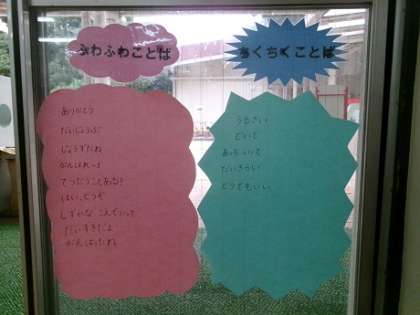 ふわふわことば
ありがとう
だいじょうぶ?
じょうずだね
がんばれっ!
てつだうことある?
はい、どうぞ
しずかなこえでいって
だいすきだよ
がんばったね
ちくちくことば
うるさい
どいて
あっちいって
だいきらい
どうでもいい